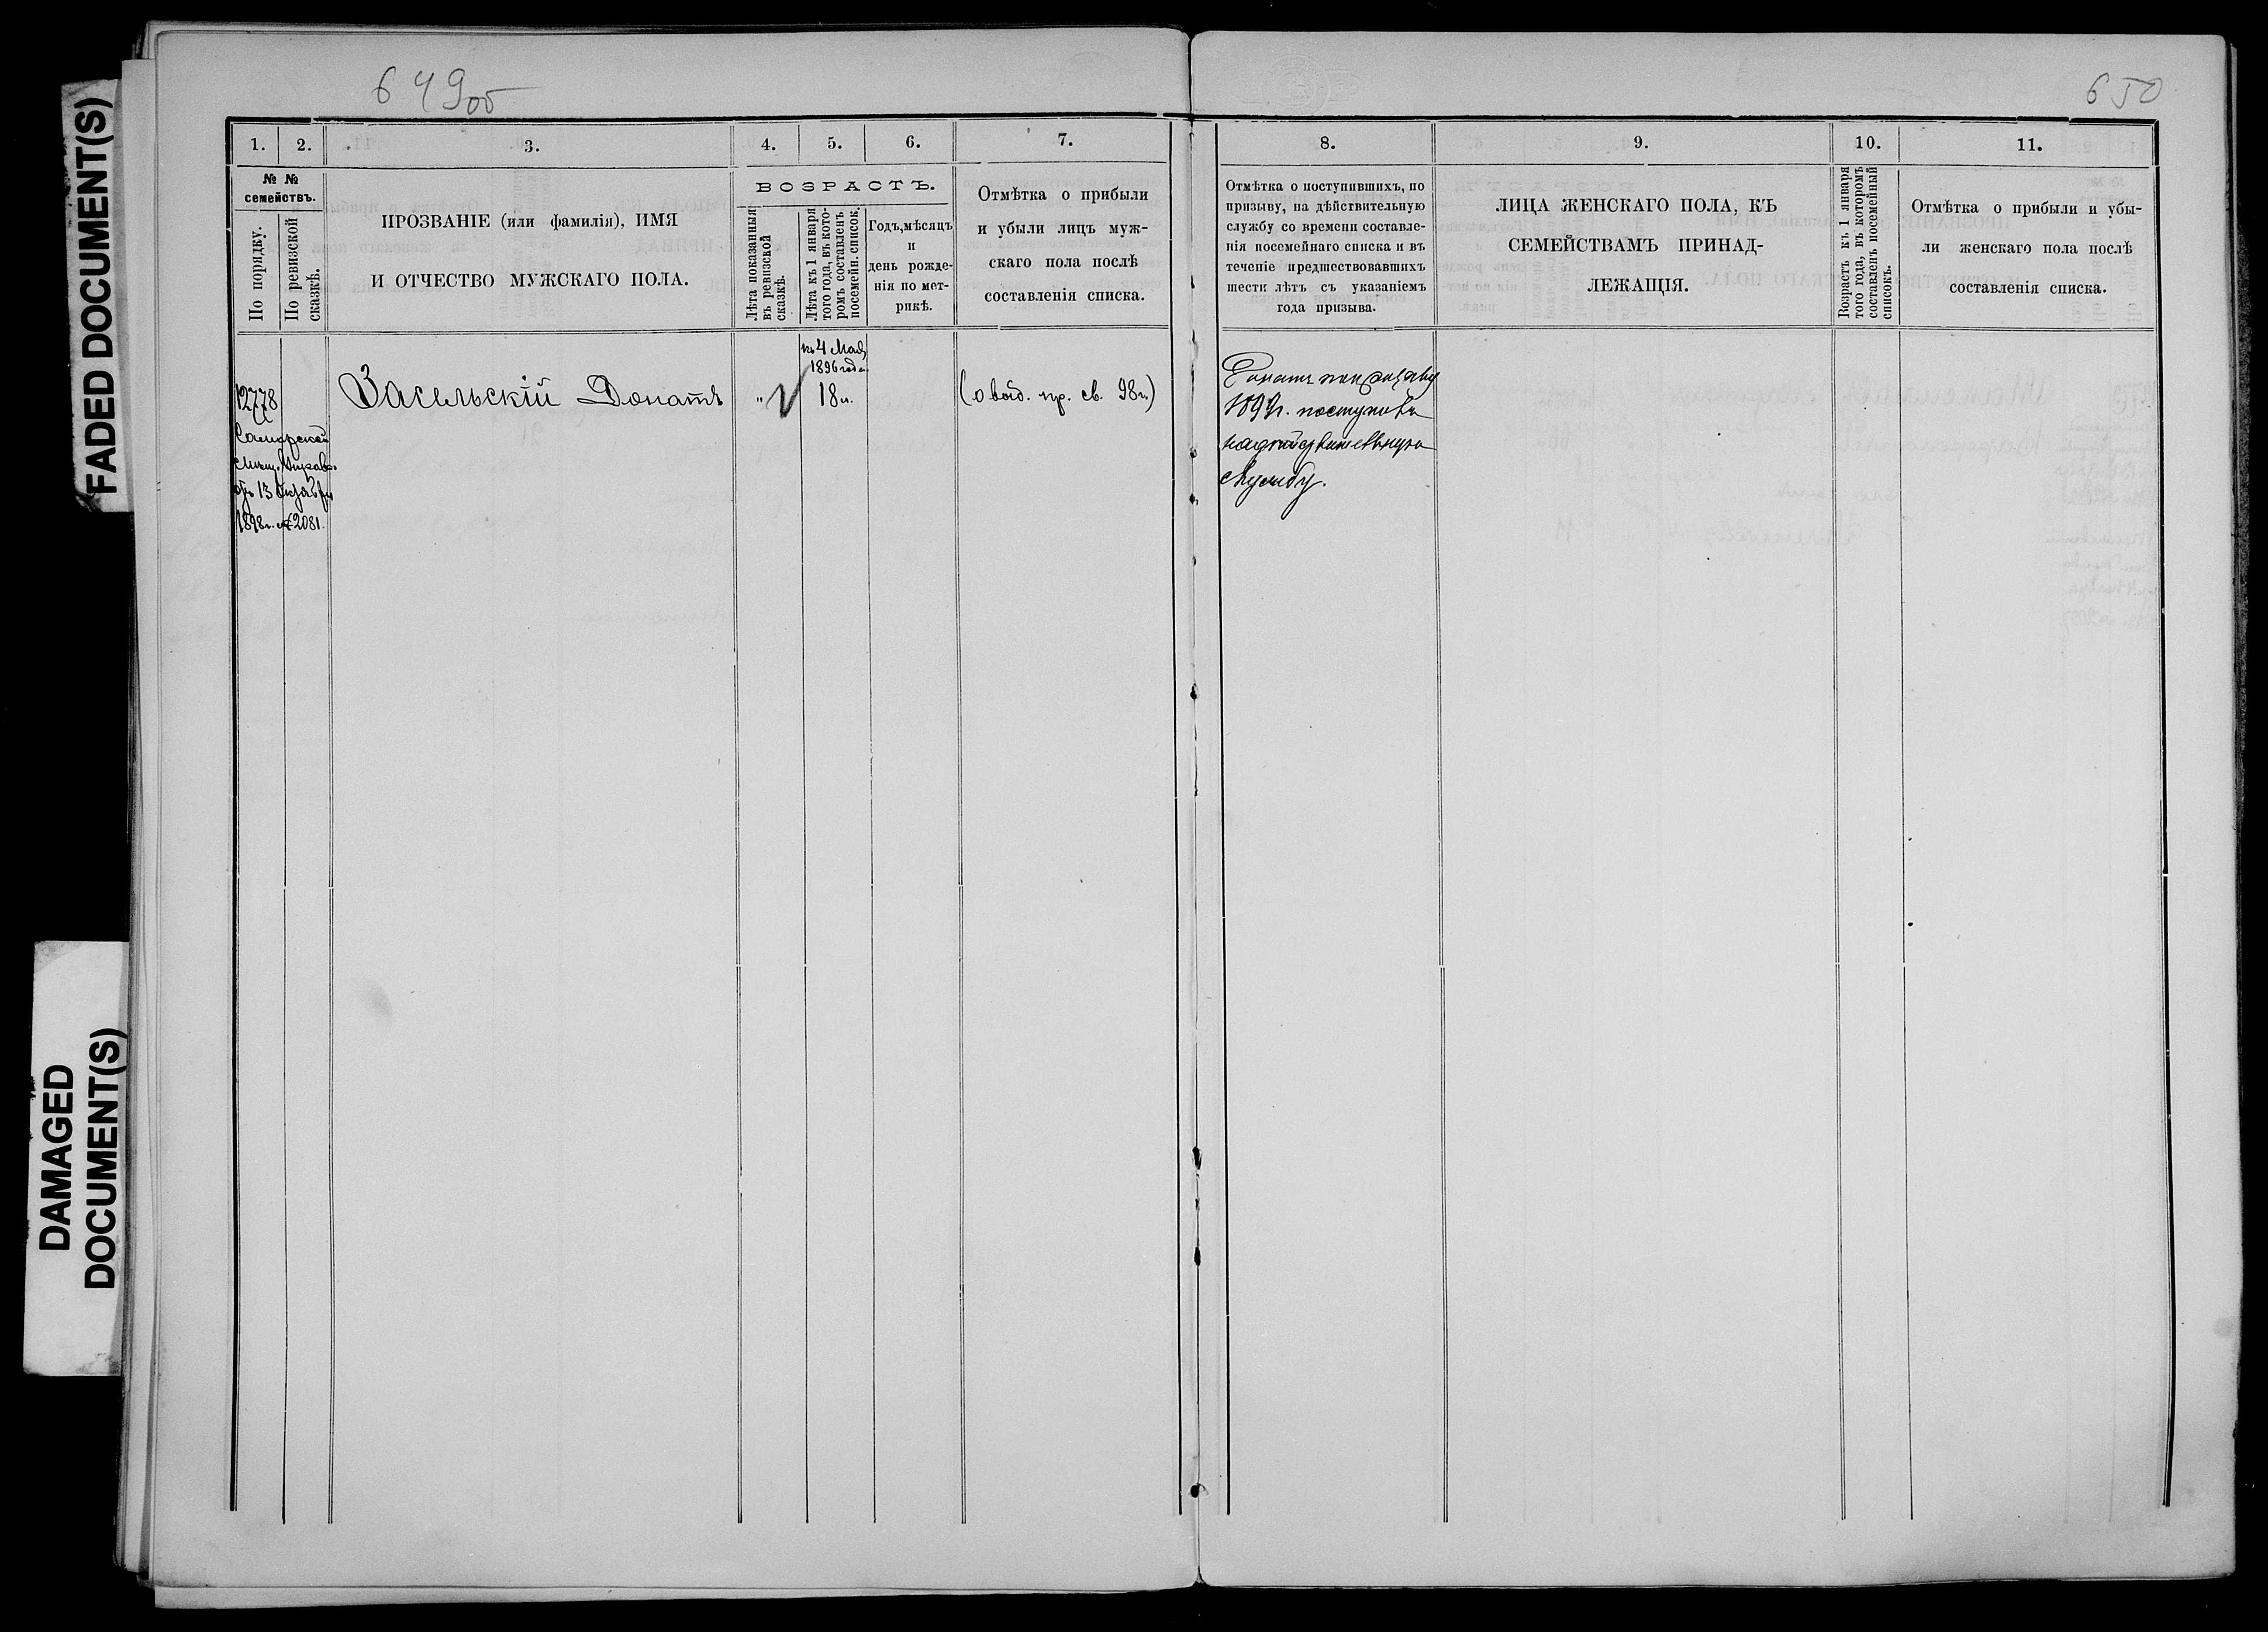 FADED DOCUMENT(S)
DAMAGED
DOCUMENT(S)
649об
1. 2. 3. 4. 5. 6. 7.
№ №
семействъ.
По порядку.
По ревизской
сказкѣ.
ПРОЗВАНІЕ (или фамилія), ИМЯ
И ОТЧЕСТВО МУЖСКАГО ПОЛА.
ВОЗРАСТЪ.
Лѣта показанныя
въ ревизской
сказкѣ.
Лѣта къ 1 января
того года, въ кото-
ромъ составленъ
посемейн. список.
Годъ, мѣсяцъ
и
день рожде-
нія по мет-
рикѣ.
Отмѣтка о прибыли
и убыли лицъ муж-
скаго пола послѣ
составленія списка.
12778
Самарской
Мѣщ. Управы
отъ 13 Октября
1898г. № 2081.
Засильскій Донатъ
"
къ 4 Мая
1896 года
18 л.
(о выд. пр. св. 98г.)
650
8. 9. 10. 11.
Отмѣтка о поступившихъ, по
призыву, на дѣйствительную
службу со времени составле-
нія посемейнаго списка и въ
теченіе предшествовавшихъ
шести лѣтъ съ указаніемъ
года призыва.
ЛИЦА ЖЕНСКАГО ПОЛА, КЪ
СЕМЕЙСТВАМЪ ПРИНАД-
ЛЕЖАЩІЯ.
Возрастъ къ 1 января
того года, въ которомъ
составленъ посемейный
списокъ.
Отмѣтка о прибыли и убы-
ли женскаго пола послѣ
составленія списка.
Донатъ по призыву
1899г. поступилъ
на дѣйствительную
службу.